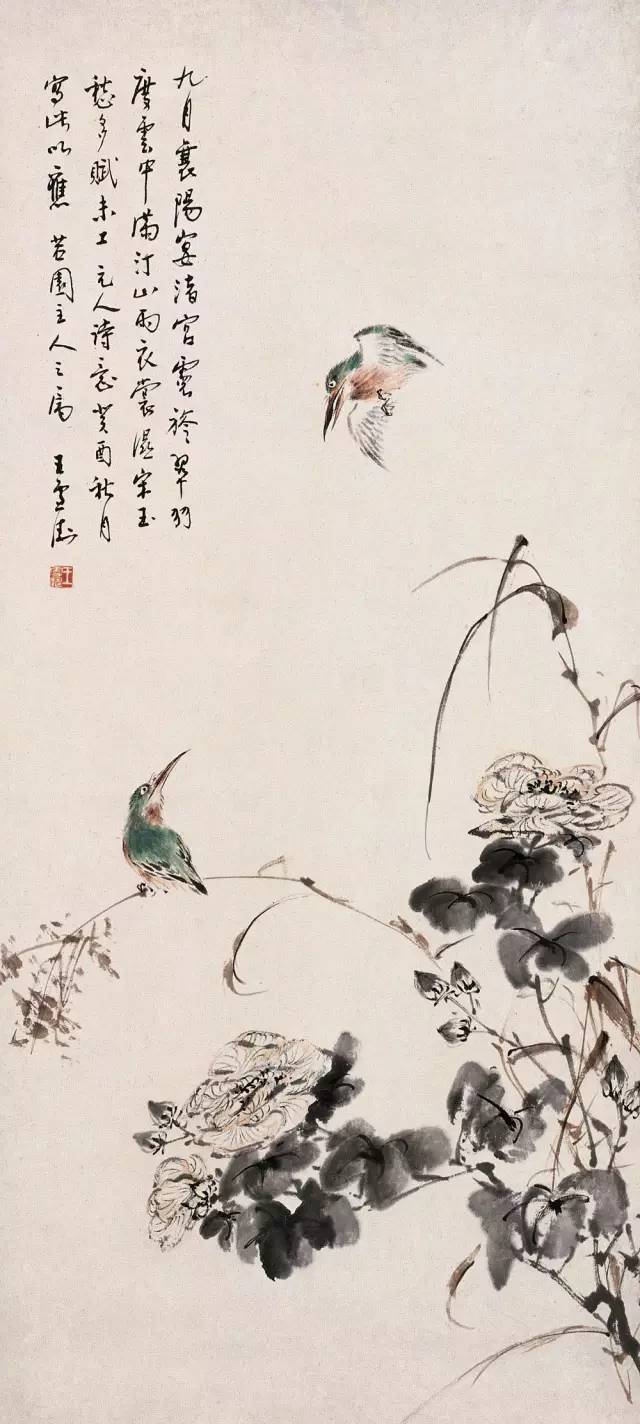 九月襄陽宴渚宮霓旍翠羽
度雲中滿汀山雨衣裳濕宋玉
愁多賦未工元人詩意癸酉秋月
寫此以應 若園主人之屬 王雪濤